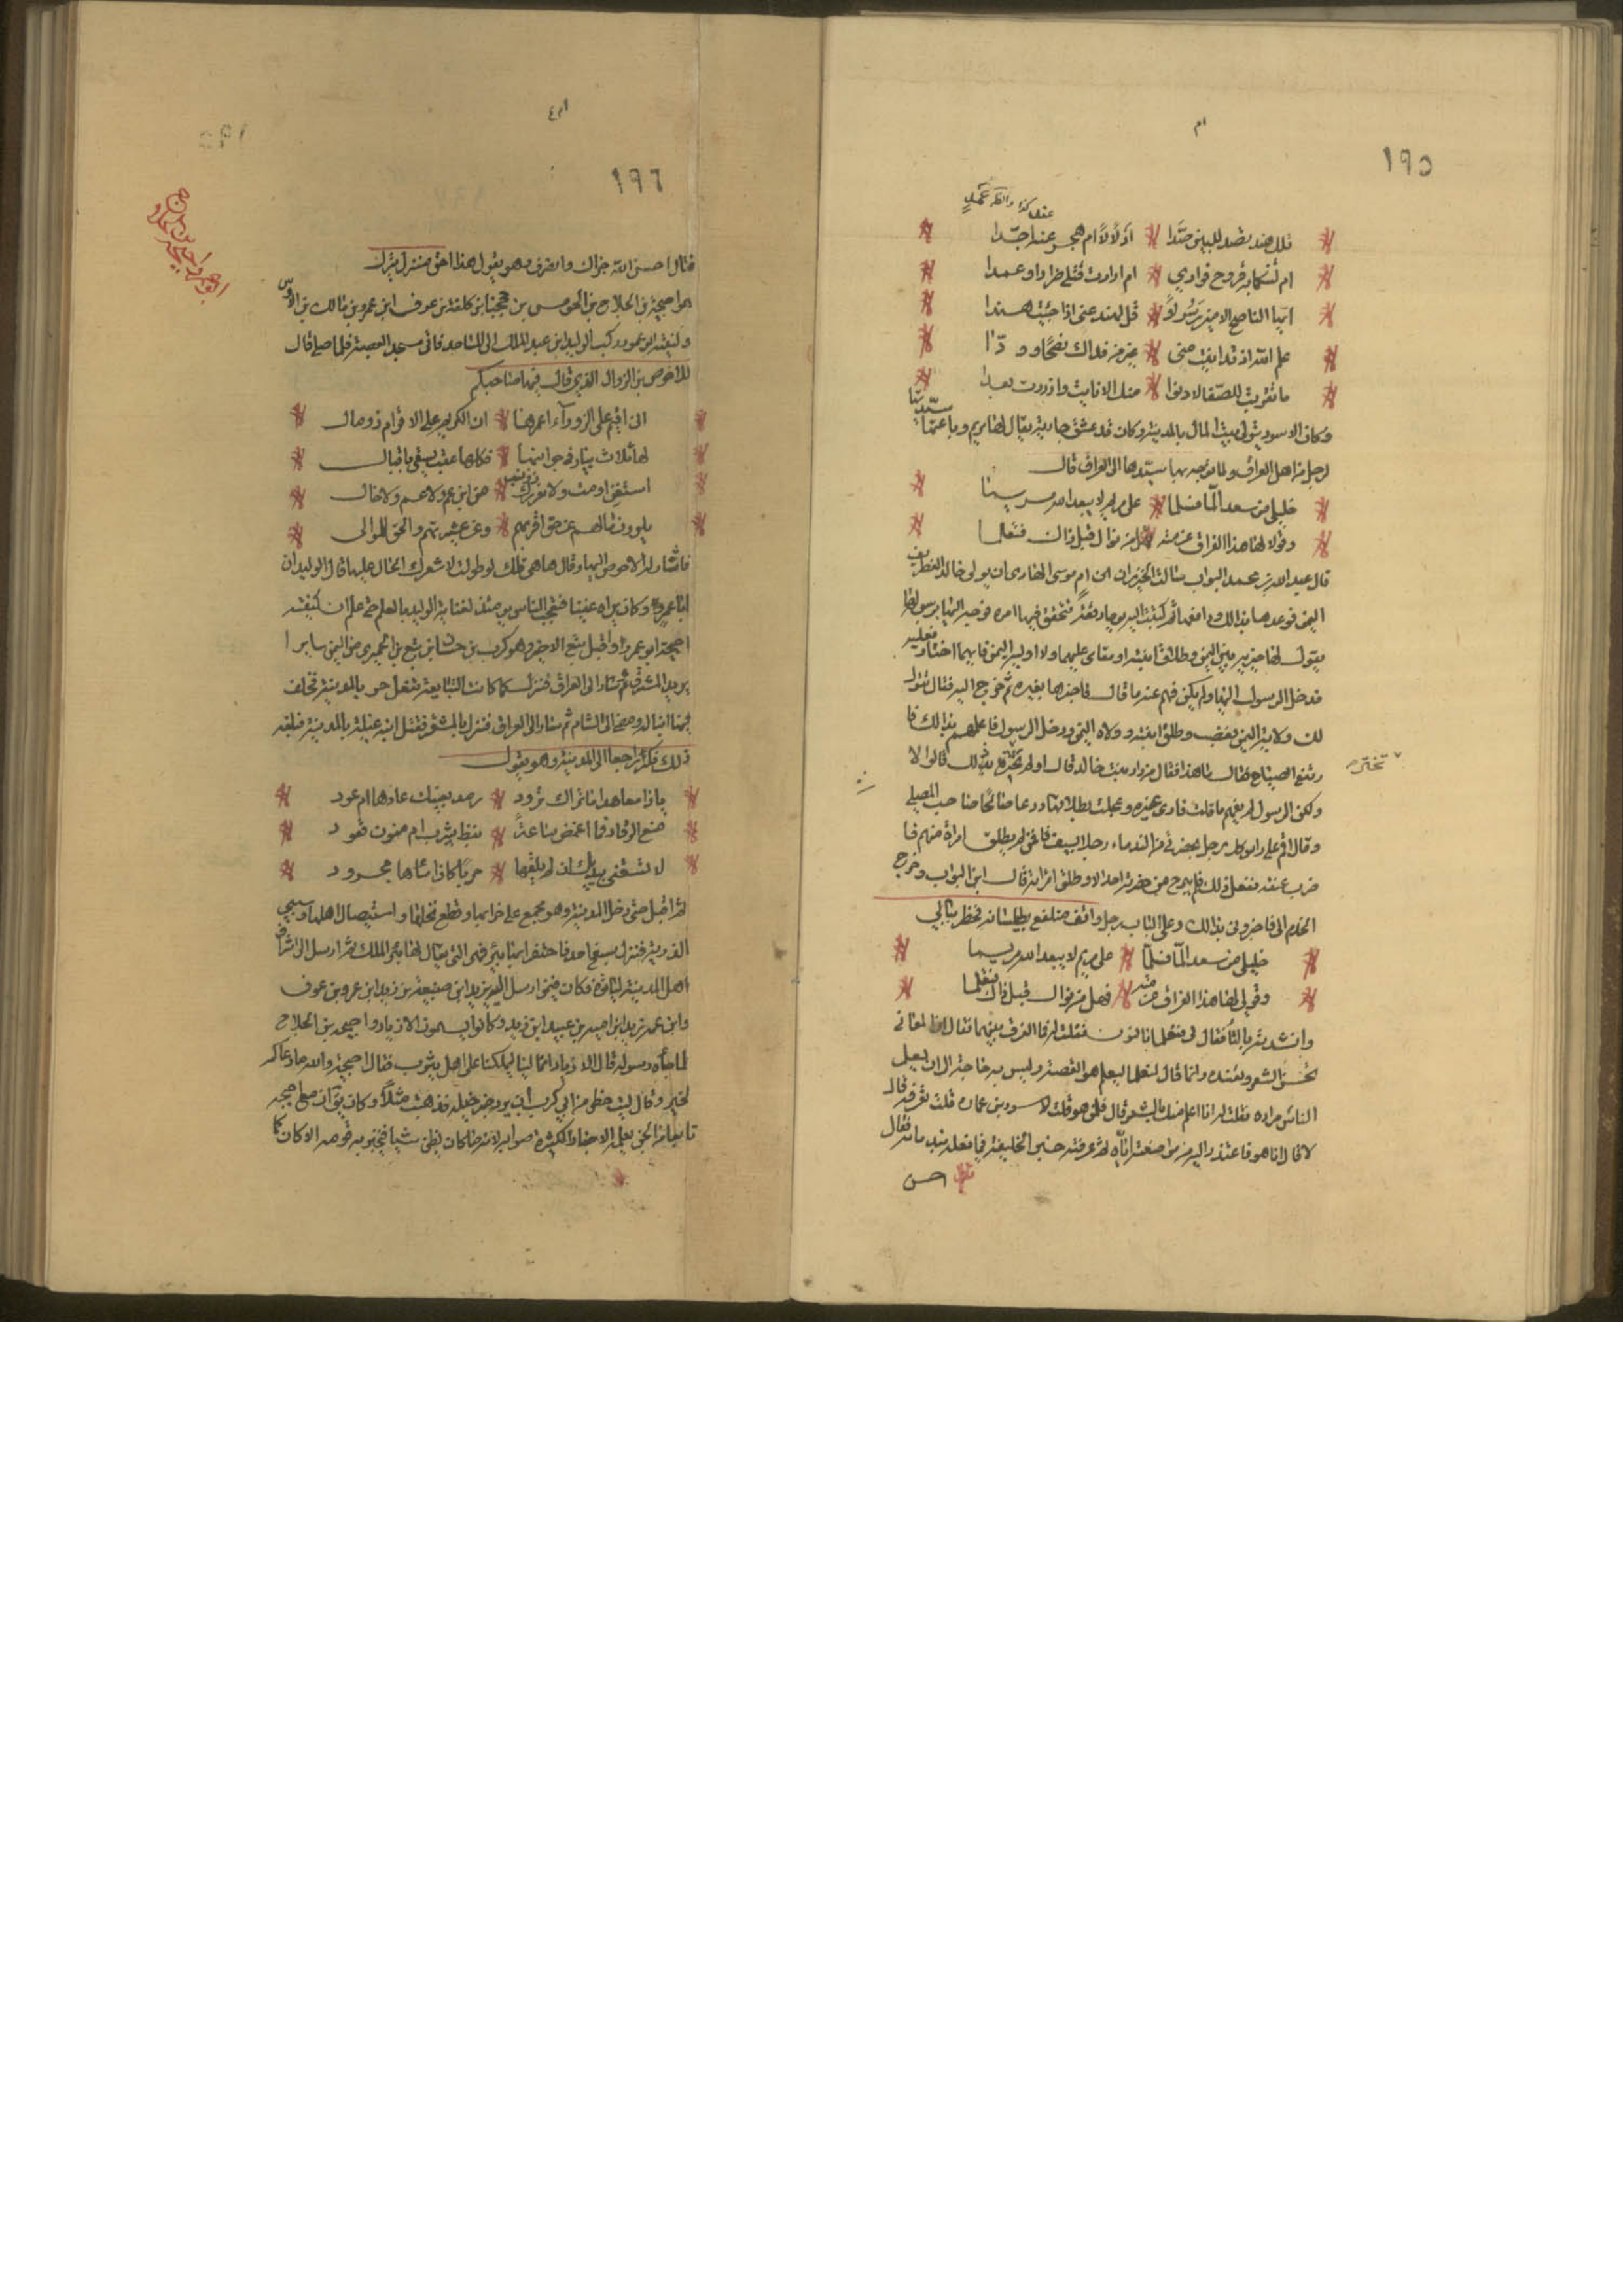 ١٩٥
تلك هند تصد للبين صدا أدلالا أم هجر هند أجدا
ام لتنكا به قروح فوادي ام ارادت قتلي ضرارا وعمدا
ايها الناصح الامين رسولا قل لهند عني اذا جئت هندا
علم الله ان قد اتيت مني غير من فداك نصحا وودا
ما تقربت بالصفا لادنوا منك الا نايت وازددت بعدا
وكان الاسود يتولى بيت المال بالمدينة وكان قد عشق جارية يقال لها مريم وباعتها سيدتها
لرجل من اهل العراق ولما توجه بها سيدها الى العراق قال
خليلي من سعد ألما فسلما على مريم لا يبعد الله مريما
وقولا لها هذا الفراق عزمته فهل من نوال قبل ذاك فنعلما
قال عبد الله بن محمد البواب سالت الخيزران ام موسى الهادي ان يولى خالد الغطريف
اليمن فوعدها بذلك ودافعها ثم كتبت اليه يوما رقعة تتحقق فيها امره فوجه اليها برسولها
يقول لها خيريه بين اليمن وطلاق ابنته او مقامي عليها ولا اوليه اليمن فايهما اختار فعلته
فدخل الرسول اليها ولم يكن فهم عنه ما قال فاخبرها بغيره ثم خرج اليه فقال تقول
لك ولاية اليمن فغضب وطلق ابنته وولاه اليمن ودخل الرسول فاعلمهم بذلك فا
رتفع الصياح فقال ما هذا فقال من دار بنت خالد قال اولم تختر ذلك قالوا لا
ولكن الرسول لم يفهم ما قلت فادى غيره وعجلت بطلاقها ودعا صالحا صاحب المصلى
وقال اقم على راس كل رجل بحضرتي من الندماء رجلا بسيف فمن لم يطلق امرأته منهم فا
ضرب عنقه ففعل ذلك فلم يبرح من حضرته احد الا وطلق امراته قال ابن البواب وخرج
الخدم الى فاخبروني بذلك وعلى الباب رجل واقف متلفع بطيلسانه فخطر ببالي
خليلي من سعد ألما فسلما على مريم لا يبعد الله مريما
وقولي لها هذا الفراق عزمته فهل من نوال قبل ذاك فنعلما
وانشدته بالتا فقال لي فنعلما بالنون فقلت له فما الفرق بينهما فقال ان المعاني
تحسن الشعر وتفسده وانما قال لنعلما ليعلم هو القصة وليس به حاجة الى ان يعلم
الناس سره فقلت له انا اعلم منك بالشعر قال فلمن هو قلت للاسود بن عمارة قلت تعرفه قال
لا قال انا هو فاعتذرت اليه من مراجعته اياه ثم عرفته خبر الخليفة فيما فعله بندمائه فقال
احسن
تختر
١٩٦
فقال احسن الله جزاك وانصرف وهو يقول هذا احق منزل بترك
هو احيحة بن الجلاح بن الحريس بن جحجبا بن كلفة بن عوف ابن عمرو بن مالك بن الاوس
وكنيته ابو عمرو ركب الوليد بن عبد الملك الى المساجد فاتى مسجد العصبة فلما صلى قال
للاحوص بن الزوال الذي قال فيها صاحبكم
اني اقيم على الزوراء اعمرها ان الكريم على الاقوام ذو مال
لها ثلاث بيار في جوانبها فكلها عقب يسقى باقبال
استغن او مت ولا يغررك ذو نشب من ابن عم ولا عم ولا خال
يلوون مالهم عن حق اقربهم وعن عشيرتهم والحق للوالى
فاشار له الاحوص اليها وقال ها هي تلك لو طولت لاشعرك الخال عليها قال الوليد ان
ابا عمرو كان يراه غنيا فعجب الناس يومئذ لعناية الوليد بالعلم حتى علم ان كنيته
احيحة ابو عمرو واقبل تبع الاخير وهو كرب بن حسان بن تبع بن الحميري من اليمن سايرا
يريد المشرق ثم سار الى العراق فنزل كما كانت التبابعة تفعل فمر بالمدينة فخلف
بها ابنا له ومضى الى الشام ثم سار الى العراق فنزل بالمشقر فقتل ابنه غيلة بالمدينة فبلغه
ذلك فكر راجعا الى المدينة وهو يقول
ياذا معاهد ما تزال ترود رمد بعينك عادها ام عود
منع الرقاد فما اغمض ساعة نبط بيثرب امنون قعود
لا تستقي بيديك ان لم تلقها حربا كان اشاها مجرود
ثم اقبل حتى دخل المدينة وهو مجمع على خرابها وقطع نخلها واستيصال اهلها وسبي
الذرية فنزل بسفح احد فاحتفر بها بئرا فهي التي يقال لها بئر الملك ثم ارسل الى اشراف
اهل المدينة لياتوه فكان فيمن ارسل اليه زيد ابن ضبيعة بن زيد ابن عمرو بن عوف
وابن عمه زيد ابن امية بن عبيد ابن زيد وكانوا يسمون الازياد واحيحة بن الجلاح
لما جاه رسوله قال الازياد انما الينا ليملكنا على اهل يثرب فقال احيحة والله ما دعاكم
لخير وقال ليت حظي من ابي كرب ان يرد خيره خبله فذهبت مثلا وكان يقال ان مع احيحة
تابعا من الجن يعلمه الاخبار لكثرة صوابه لانه ما كان يظن شيئا فيخبر به قومه الا كان كما
ابو عمرو احيحة بن الجلاح